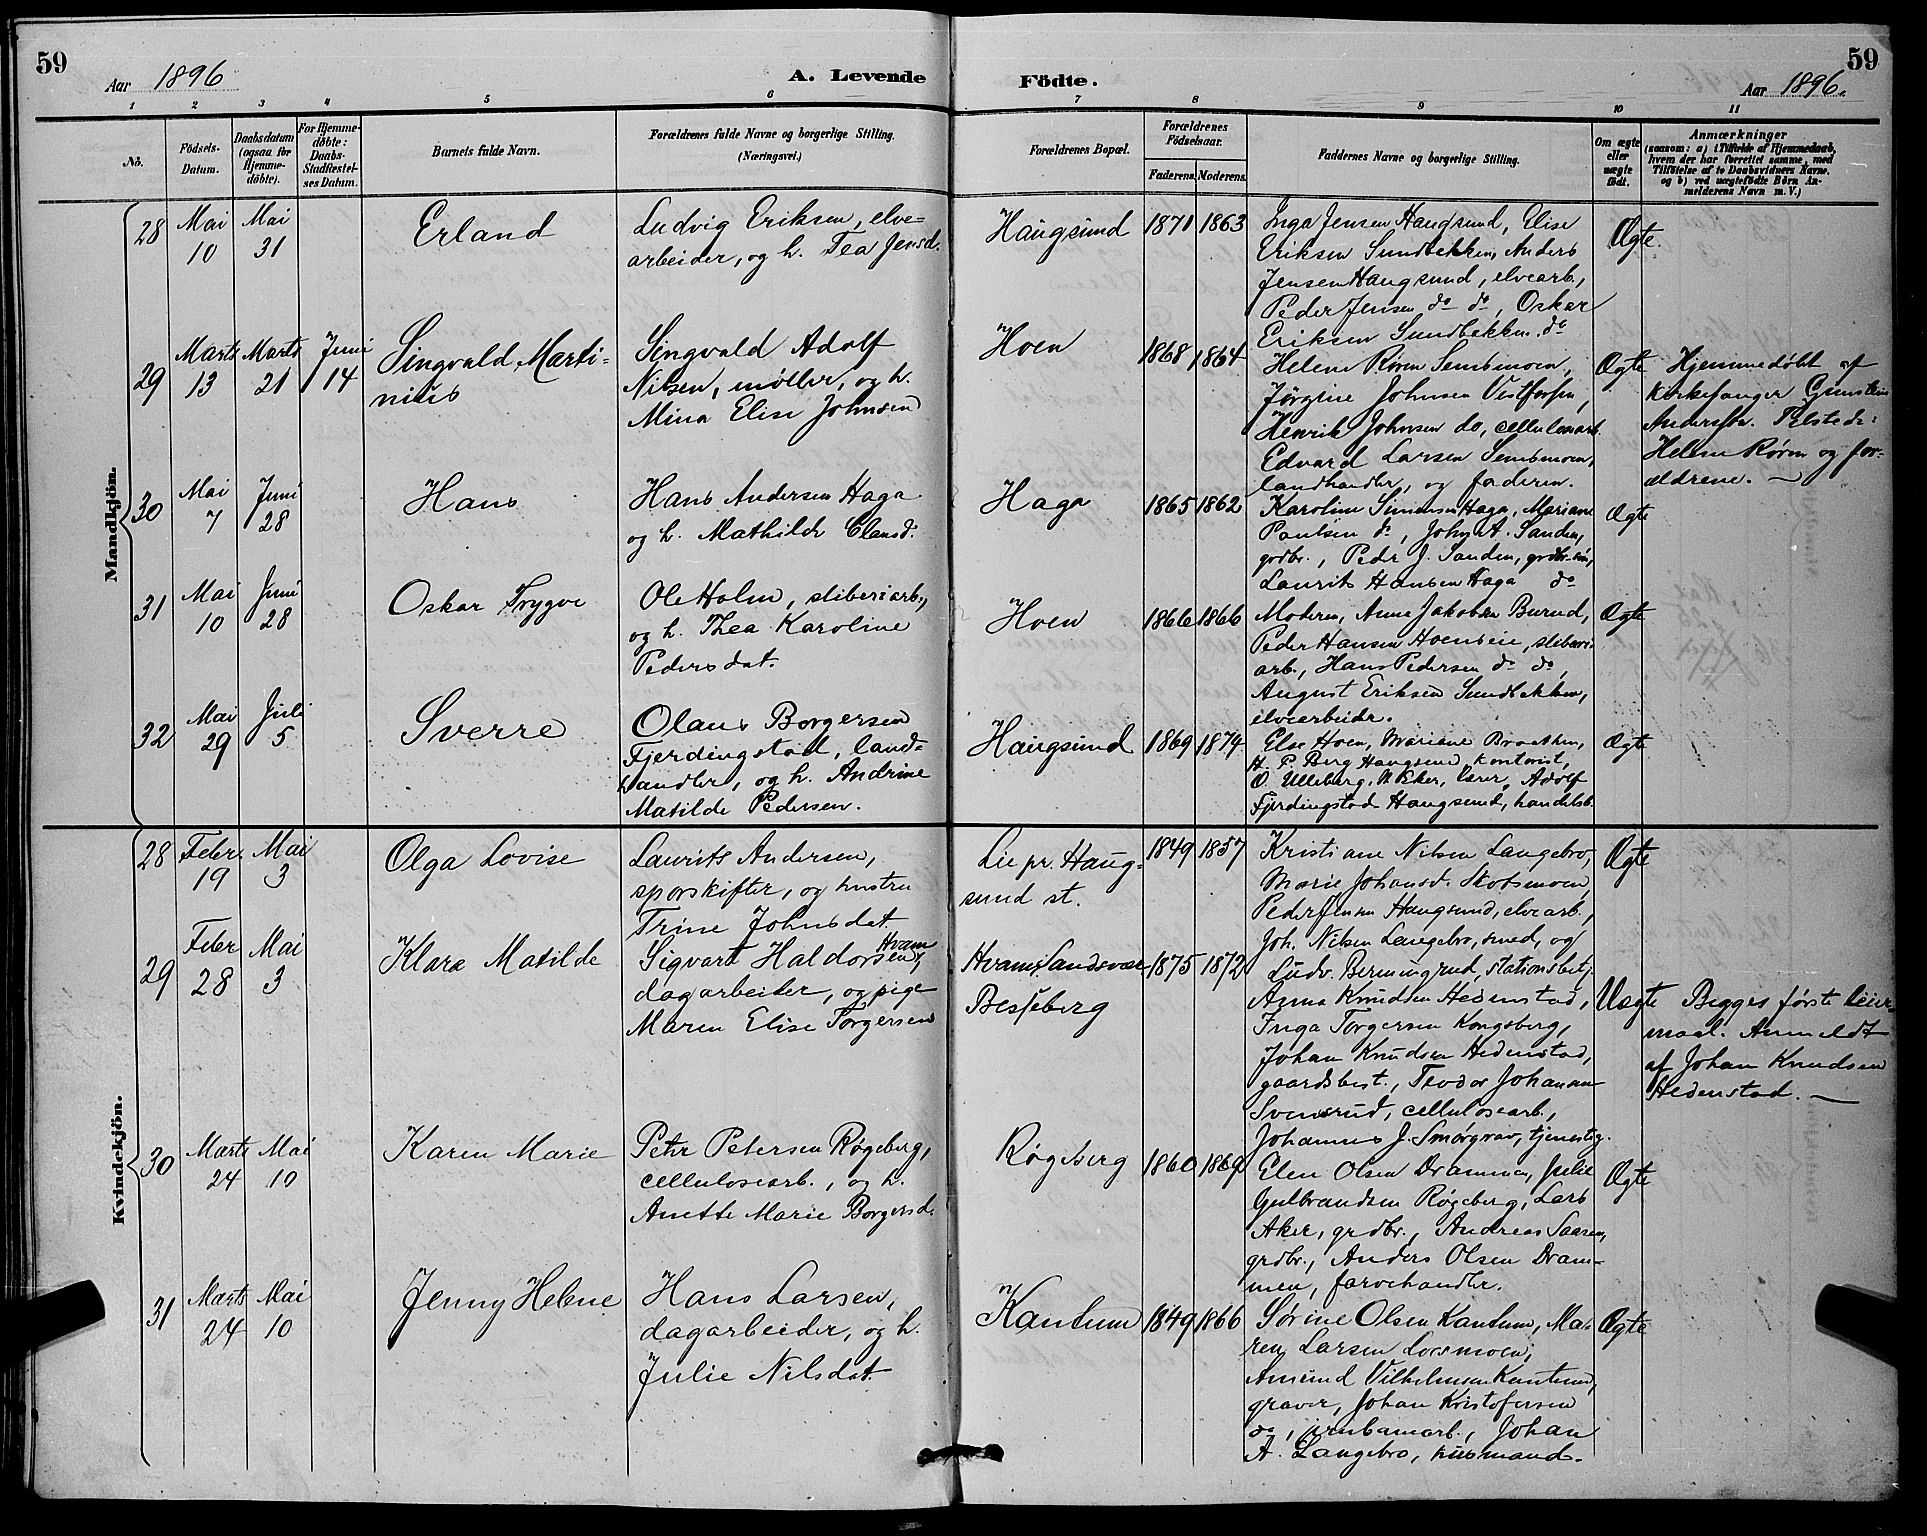 59
Aar 1896
A. Levende Födte.
59
Aar 1896.
1 2 3 4 5 6 7 8 9 10 11
No.
Födsels-
Datum.
Daabsdatum
(ogsaa for
Hjemme-
döbte).
For Hjemme-
döbte:
Daabs-
Stadfæstel-
ses Datum.
Barnets fulde Navn.
Forældrenes fulde Navne og borgerlige Stilling.
(Næringsvei.)
Forældrenes Bopæl.
Forældrenes
Födselsaar.
Faderens. Moderens.
Faddernes Navne og borgerlige Stilling.
Om ægte
eller
uægte
födt.
Anmærkninger
(saasom: a) i Tilfælde af Hjemmedaab,
hvem der har forrettet samme, med
Tilföielse af to Daabsvidners Navne,
og b) ved uægtefödte Börn An-
melderens Navn m. V.)
Mandkjön.
28
Mai
10
Mai
31
Erland
Ludvig Eriksen, elve-
arbeider, og h. Tea Jensd.
Haugsund
1871 1863
Inga Jensen Haugsund, Elise
Eriksen Sundbakken, Anders
Jensen Haugsund, elvearb.,
Peder Jensen do do, Oskar
Eriksen Sundbakken do
Ægte.
29
Marts
13
Marts
21
Juni
14
Singvald Marti-
nius
Singvald Adolf
Nilsen, møller, og h.
Mina Elise Johnsen
Hoen
1868 1864
Helene Røren Sembsmoen,
Jørgine Johnsen Vestfossen,
Henrik Johnsen do, cellulosearb.
Edvard Larsen Sembsmoen,
landhandler, og faderen.
Ægte
Hjemmedøbt af
kirkesanger Gunstein
Andersen. Tilstede:
Helene Røren og for-
ældrene. —
30
Mai
7
Juni
28
Hans
Hans Andersen Haga
og h. Mathilde Clausd:
Haga
1865 1862
Karoline Simensen Haga, Mariane
Paulsen do, John A. Sanden,
grdbr., Peder J. Sanden, grdbr.søn,
Laurits Hansen Haga do
Ægte
31
Mai
10
Juni
28
Oskar Trygve
Ole Holm, sliberiarb.,
og h. Thea Karoline
Pedersdat.
Hoen
1866 1866
Moderen, Anne Jakobsen Burud,
Peder Hansen Hoenseie, sliberi-
arb., Hans Pedersen do do,
August Eriksen Sundbakken,
elvearbeider.
Ægte
32
Mai
29
Juli
5
Sverre
Olaus Borgersen
Fjerdingstad, land-
handler, og h. Andrine
Matilde Pedersen.
Haugsund
1869 1874
Else Hoen, Mariane Braathen,
H. P. Berg Haugsund, kontorist,
O. Ulleberg, N. Eker, lærer, Adolf
Fjerdingstad Haugsund, handelsb.
Ægte
Kvindekjön.
28
Febr.
19
Mai
3
Olga Lovise
Laurits Andersen,
sporskifter, og hustru
Trine Johnsdat.
Lie pr. Haug-
sund st.
1849 1857
Kristiane Nilsen Langebro,
Marie Johansd. Skotsmoen,
Peder Jensen Haugsund, elvearb.,
Joh. Nilsen Langebro, smed, og
Ludv. Bermingrud, stationsbetj.
Ægte
29
Febr
28
Mai
3
Klara Matilde
Sigvart Haldorsen Hvam,
dagarbeider, og pige
Maren Elise Torgersen
Hvam, Sandsvær
Besseberg
1875 1872
Anna Knudsen Hedenstad,
Inga Torgersen Kongsberg,
Johan Knudsen Hedenstad,
gaardsbest., Teodor Johansen
Svensrud, cellulosearb.,
Johannes J. Smørgrav, tjenestg.
Uægte
Begges første leier-
maal. Anmeldt
af Johan Knudsen
Hedenstad. —
30
Marts
24
Mai
10
Karen Marie
Petter Petersen Røgeberg,
cellulosearb., og h.
Anette Marie Borgersd.
Røgeberg
1860 1869
Elen Olsen Drammen, Julie
Gulbrandsen Røgeberg, Lars
Aker, grdbr., Andreas Saasen,
grdbr., Anders Olsen Dram-
men, farvehandler.
Ægte
31
Marts
24
Mai
10
Jenny Helene
Hans Larsen,
dagarbeider, og h.
Julie Nilsdat.
Kantum
1849 1866
Sørine Olsen Kantum, Ma-
ren Larsen Loesmoen,
Amund Vilhelmsen Kantum,
graver, Johan Kristofersen
do, jernbanearb., Johan
A. Langebro, husmand.
Ægte